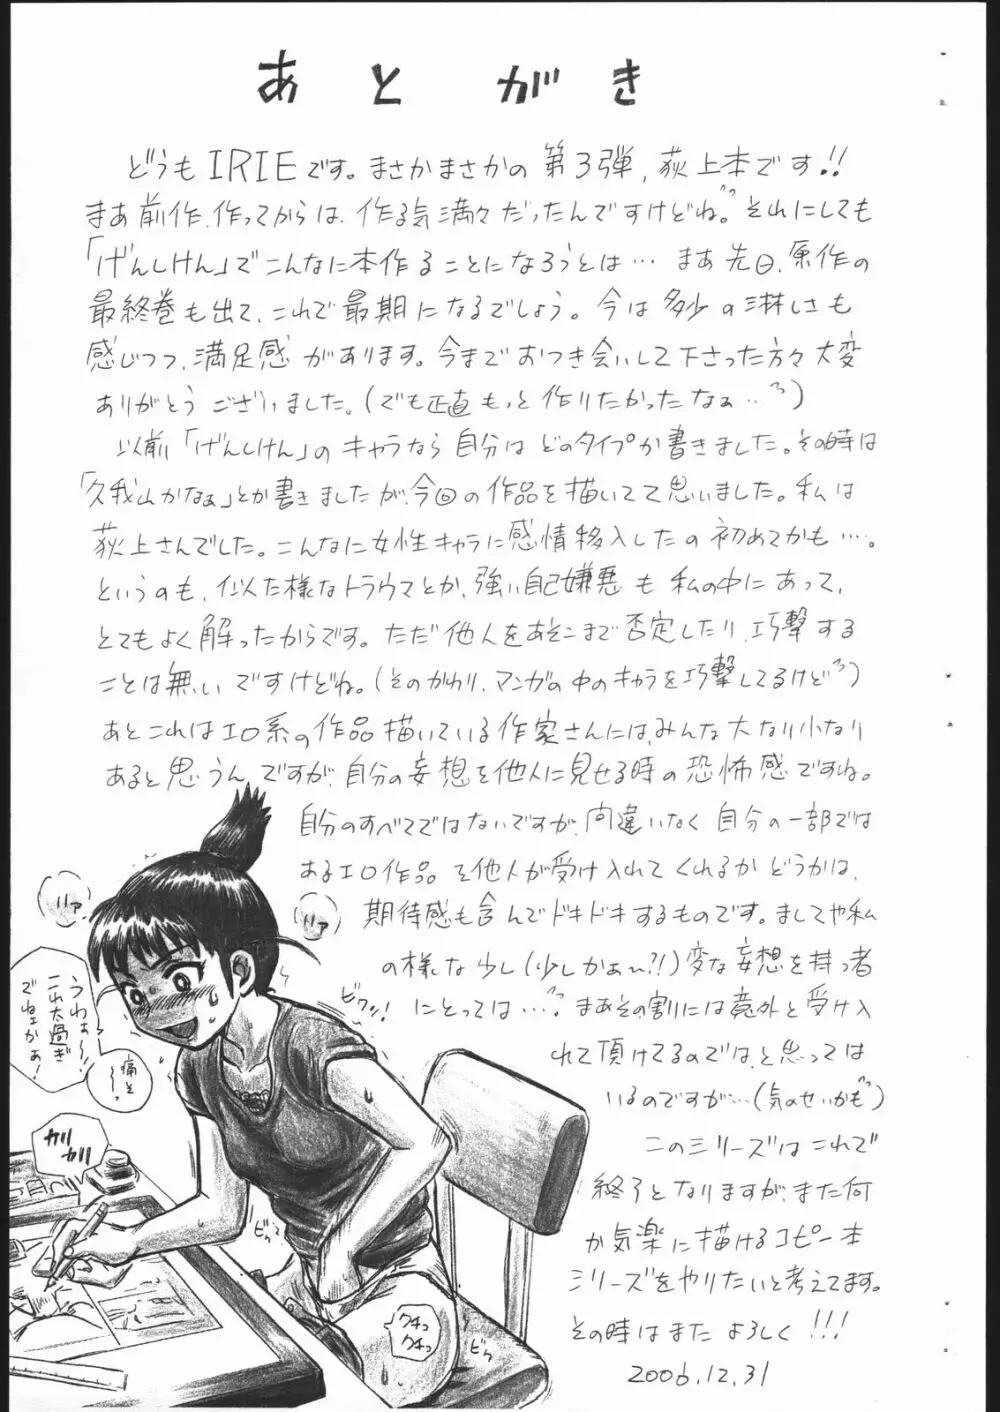 あとがき
どうもIRIEです。まさかまさかの第3弾、荻上本です!!
まあ前作、作ってからは、作る気満々だったんですけどね。それにしても
「げんしけん」でこんなに本作ることになろうとは… まあ先日、原作の
最終巻も出て、これで最期になるでしょう。今は多少の淋しさも
感じつつ、満足感があります。今までおつき会いして下さった方々大変
ありがとうございました。(でも正直もっと作りたかったなぁ…)
以前「げんしけん」のキャラなら自分はどのタイプか書きました。その時は
「久我山かなぁ」とか書きましたが、今回の作品を描いてて思いました。私は
荻上さんでした。こんなに女性キャラに感情移入したの初めてかも…。
というのも、似た様なトラウマとか、強い自己嫌悪も私の中にあって、
とてもよく解ったからです。ただ他人をあそこまで否定したり、巧撃する
ことは無いですけどね。(そのかわり、マンガの中のキャラを巧撃してるけど)
あとこれはエロ系の作品描いている作家さんには、みんな大なり小なり
あると思うんですが、自分の妄想を他人に見せる時の恐怖感ですね。
自分のすべてではないですが、間違いなく自分の一部では
あるエロ作品を他人が受け入れてくれるかどうかは、
期待感も含んでドキドキするものです。ましてや私
の様な少し(少しかぁ〜?!)変な妄想を持つ者
にとっては…。まあその割には意外と受け入
れて頂けてるのでは、と思っては
いるのですが…(気のせいかも)
このシリーズはこれで
終了となりますが、また何
か気楽に描けるコピー本
シリーズをやりたいと考えてます。
その時はまたよろしく!!!
2006.12.31
ハァ
ハァ
うわぁ〜!
これ太過ぎ
でねェかぁ!
痛そ〜っ
カリ
カリ
ビクッ!
ビクッ
クチュ
クチュ
ビクッ